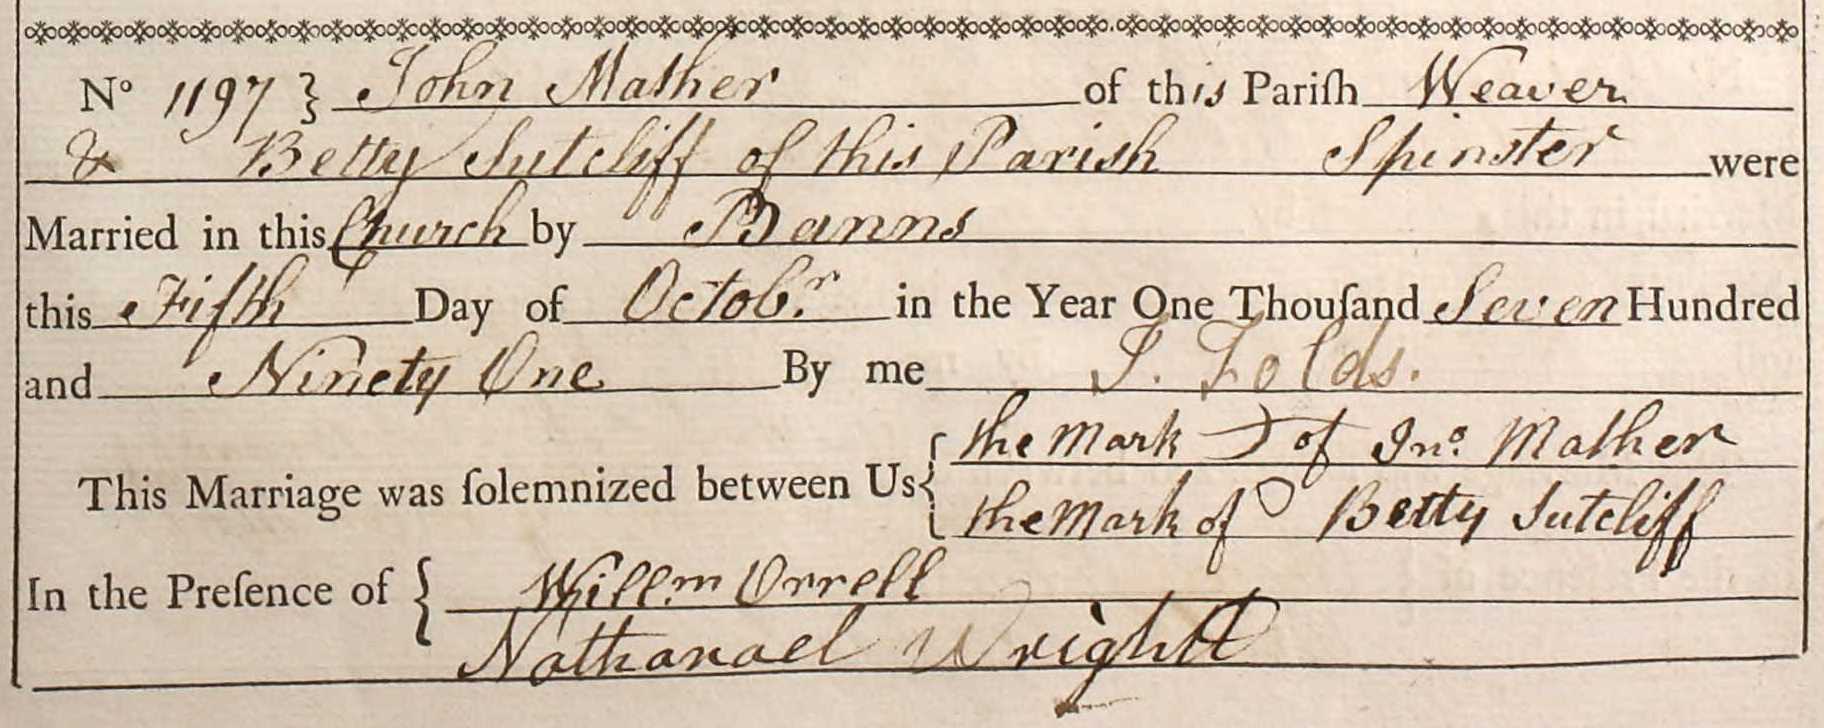 No 1197 } John Mather of this Pariſh Weaver
& Betty Sutcliff of this Parish Spinster were
Married in this Church by Banns
this Fifth Day of Octobr. in the Year One Thouſand Seven Hundred
and Ninety One By me J. Folds.
This Marriage was ſolemnized between Us { the Mark of Jno. Mather
the Mark of Betty Sutcliff
In the Preſence of { Willm Orrell
Nathanael Wright